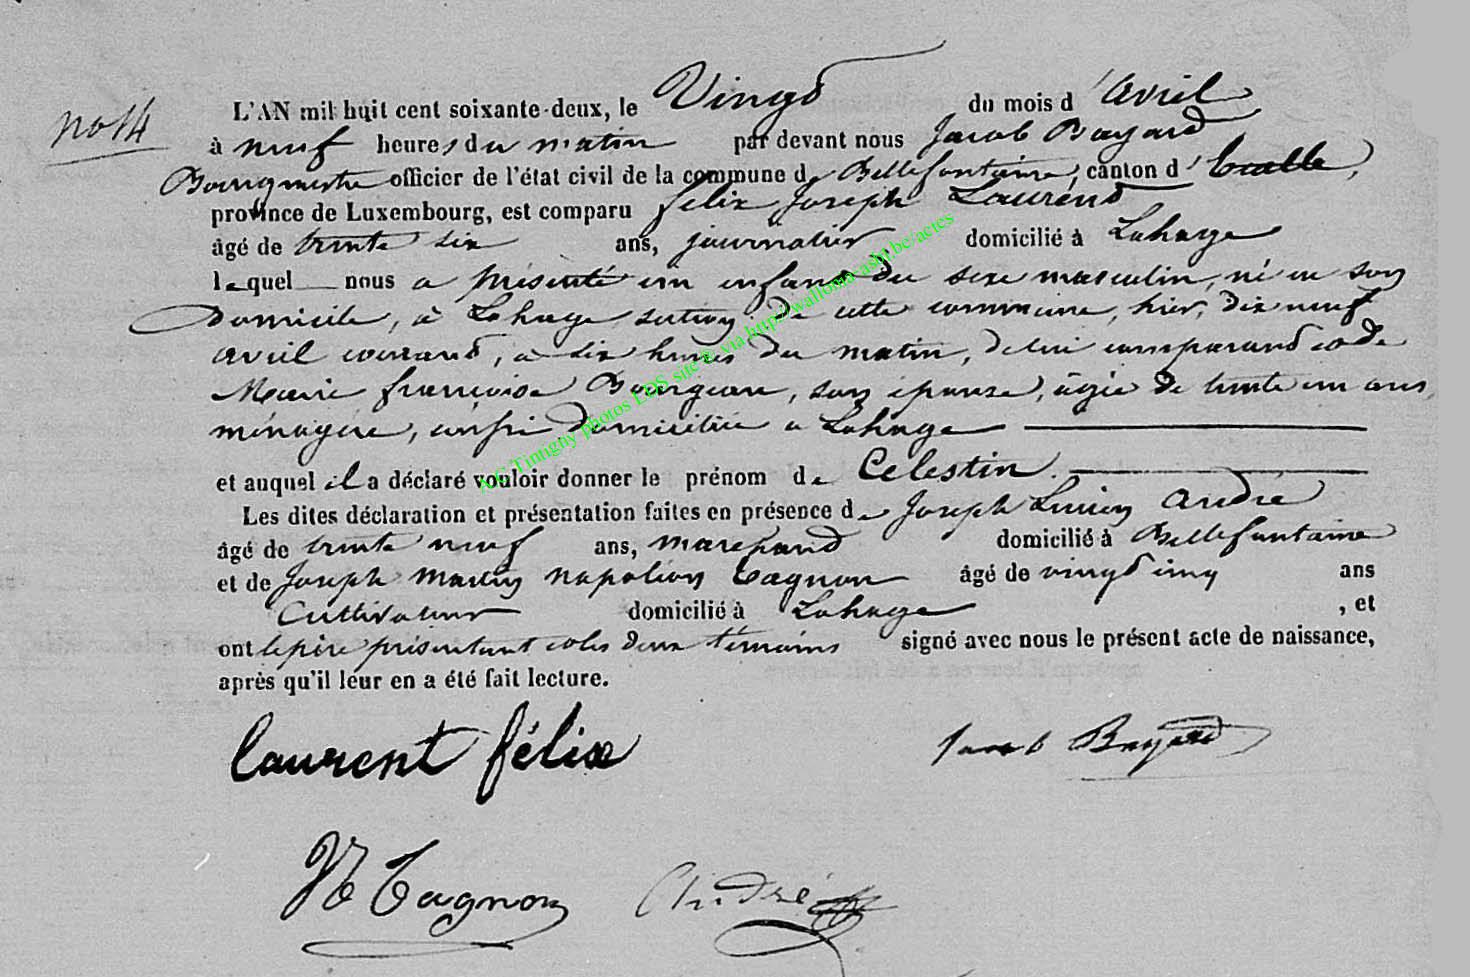 no 14
L'AN mil huit cent soixante-deux, le Vingt du mois d'avril
à neuf heures du matin par devant nous Jacob Bayard
Bourgmestre officier de l'état civil de la commune de Bellefontaine, canton d'Etalle,
province de Luxembourg, est comparu felix Joseph Laurent
âgé de trente six ans, journalier, domicilié à Lahage
lequel nous a présenté un enfant du sexe masculin, né en son
domicile, à Lahage section de cette commune, hier, dix neuf
avril courant, a six heures du matin, de lui comparant et de
Marie françoise Bourgeau, son épouse, âgée de trente un ans,
ménagère, aussi domiciliée a Lahage
et auquel il a déclaré vouloir donner le prénom de Celestin.
Les dites déclaration et présentation faites en présence de Joseph Lucien André
âgé de trente neuf ans, marchand domicilié à Bellefontaine
et de Joseph Martin napoléon Tagnon âgé de vingt cinq ans
Cultivateur domicilié à Lahage, et
ont le père présentant et les deux témoins signé avec nous le présent acte de naissance,
après qu'il leur en a été fait lecture.
laurent félix
Jacob Bayard
N Tagnon
André
A.G Tintigny photos LDS site © via http://wallonia.asbl.be/actes